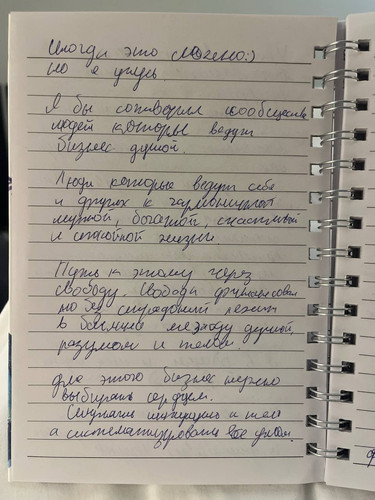 Иногда это сложно:)
Но я учусь
Я бы сотворил сообщество
людей которые ведут
бизнес душой.
Люди которые ведут себя
и других к гармоничной
мудрой, богатой, счастливой
и спокойной жизни.
Путь к этому через
свободу. Свобода финансовая
но без страданий лежит
в балансе между душой,
разумом и телом.
Для этого бизнес нужно
выбирать сердцем.
Слушать интуицию и тело
а систематизировать все умом.